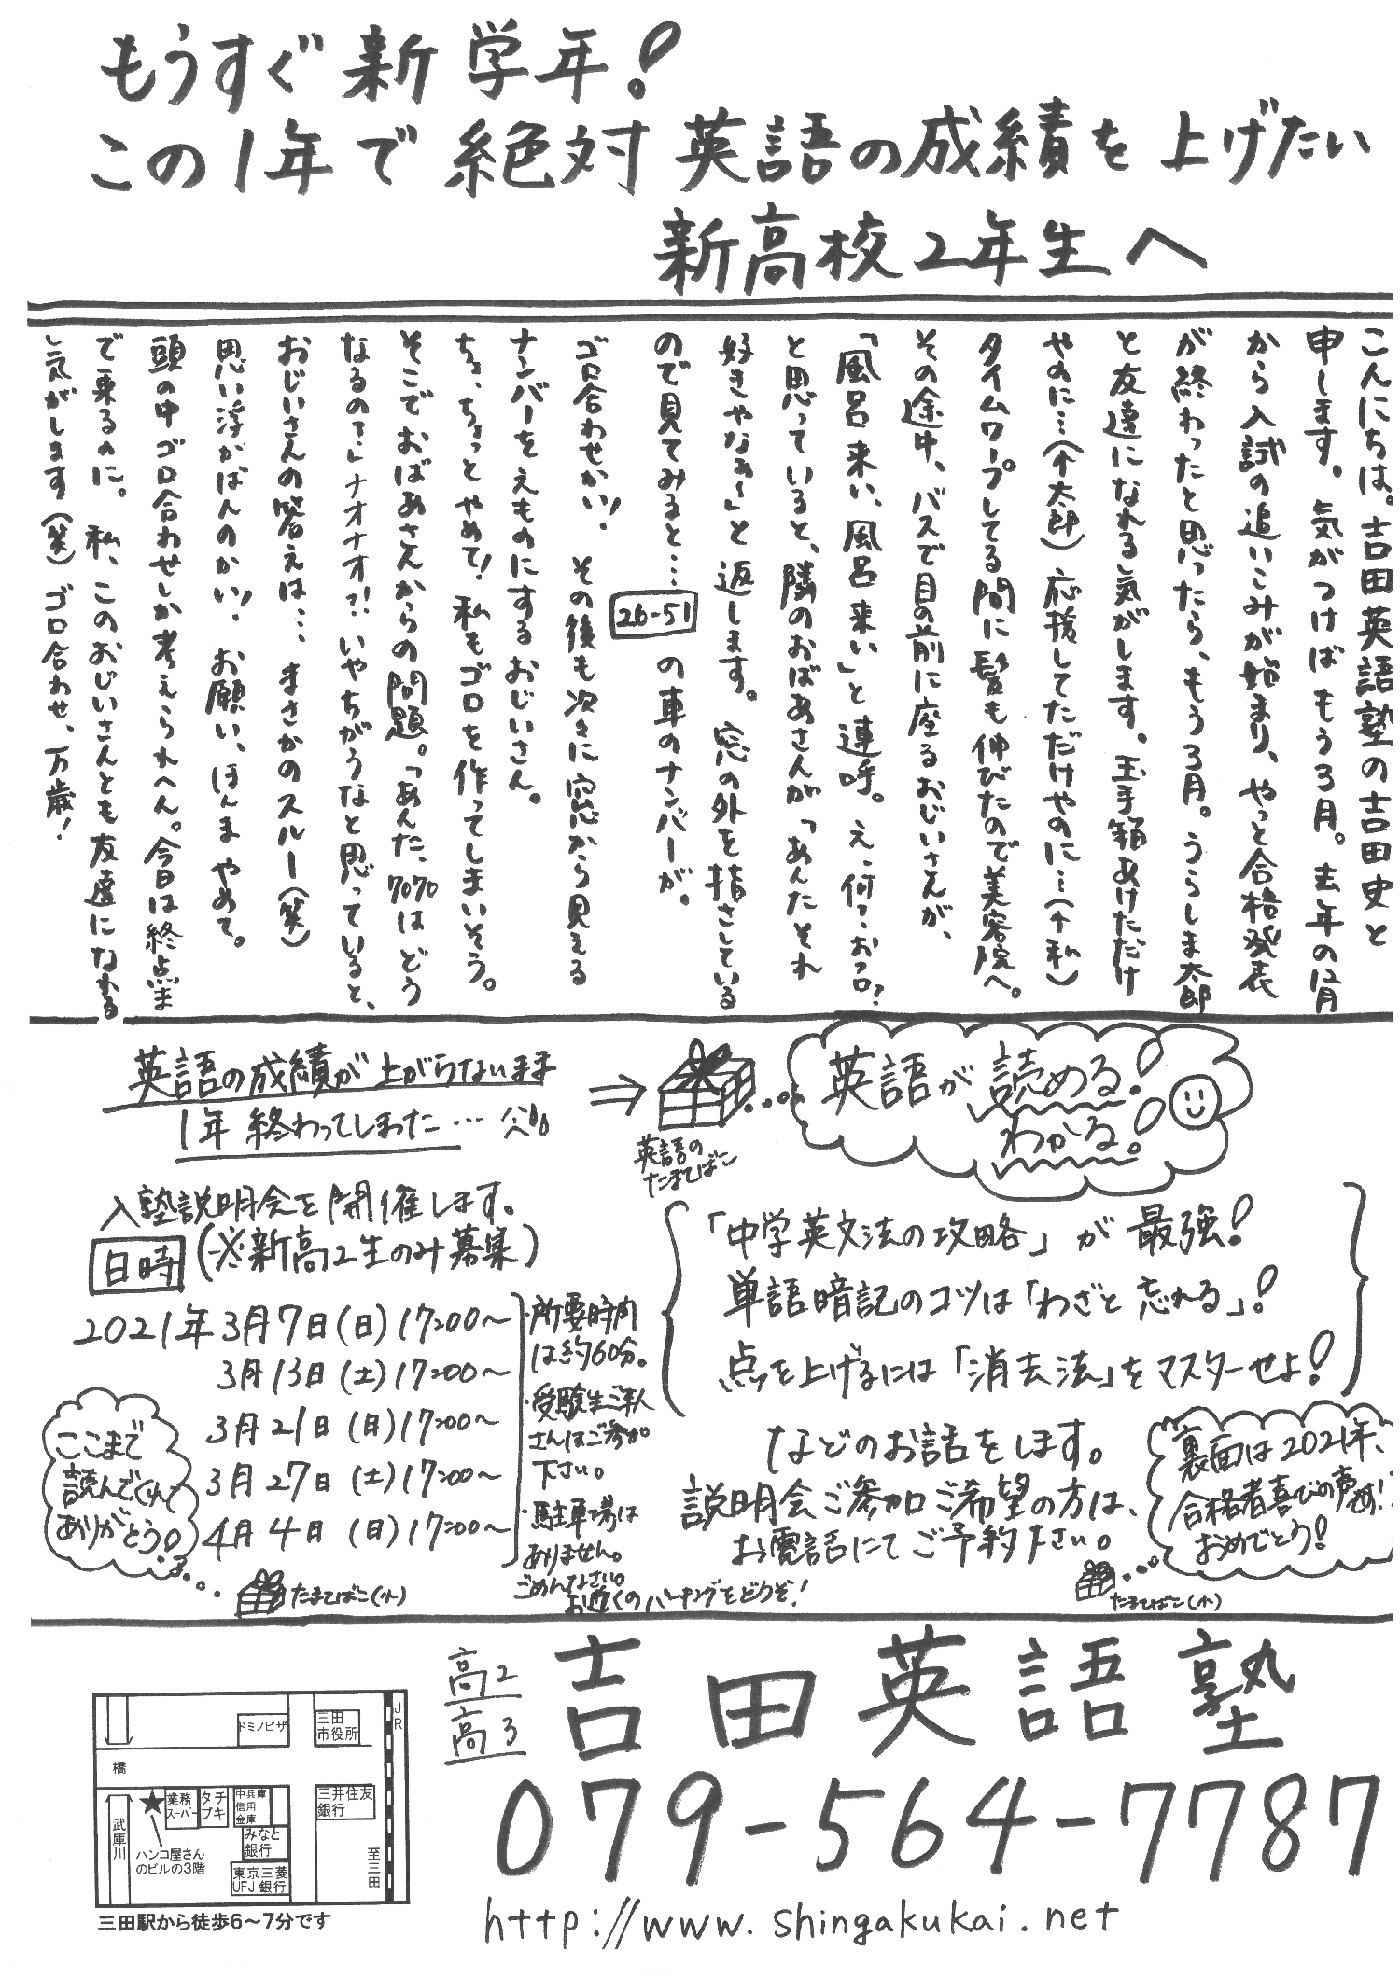 もうすぐ新学年!
この1年で絶対英語の成績を上げたい
新高校2年生へ
こんにちは。吉田英語塾の吉田史と
申します。気がつけばもう3月。去年の12月
から入試の追いこみが始まり、やっと合格発表
が終わったと思ったら、もう3月。うらしま太郎
と友達になれる気がします。玉手箱あけただけ
やのに…(↑太郎)応援してただけやのに…(↑私)
タイムワープしてる間に髪も伸びたので美容院へ。
その途中、バスで目の前に座るおじいさんが、
「風呂来い、風呂来い」と連呼。え、何?、お風呂?
と思っていると、隣のおばあさんが「あんたそれ
好きやなぁ〜」と返します。窓の外を指さしている
ので見てみると… 26-51 の車のナンバーが。
ゴロ合わせかい! その後も次々に窓から見える
ナンバーをえものにするおじいさん。
ちょ、ちょっとやめて!私もゴロを作ってしまいそう。
そこでおばあさんからの問題。「あんた、7070はどう
なるの?」ナオナオ?!いやちがうなと思っていると、
おじいさんの答えは… まさかのスルー(笑)
思い浮かばんのかい! お願い、ほんまやめて。
頭の中ゴロ合わせしか考えられへん。今日は終点ま
で乗るのに。 私、このおじいさんとも友達になれる
気がします(笑)ゴロ合わせ、万歳!
英語の成績が上がらないまま
1年終わってしまった…
⇒
英語の
たまてばこ
英語が読める!
わかる!
入塾説明会を開催します。
日時 (※新高2生のみ募集)
2021年3月7日(日)17:00〜
3月13日(土)17:00〜
3月21日(日)17:00〜
3月27日(土)17:00〜
4月4日(日)17:00〜
・所要時間
は約60分。
・受験生ご本人
さんはご参加
下さい。
・駐車場は
ありません。
ごめんなさい。
お近くのパーキングをどうぞ!
ここまで
読んでくれて
ありがとう!
たまてばこ(小)
「中学英文法の攻略」が最強!
単語暗記のコツは「わざと忘れる」!
点を上げるには「消去法」をマスターせよ!
などのお話をします。
説明会ご参加ご希望の方は、
お電話にてご予約下さい。
裏面は2021年、
合格者喜びの声
おめでとう!
たまてばこ(小)
高2
高3
吉田英語塾
079-564-7787
http://www.shingakukai.net
JR
ドミノピザ
三田
市役所
橋
武庫川
業務
スーパー
タチ
ブキ
中兵庫
信用
金庫
三井住友
銀行
みなと
銀行
東京三菱
UFJ銀行
ハンコ屋さん
のビルの3階
至三田
三田駅から徒歩6〜7分です